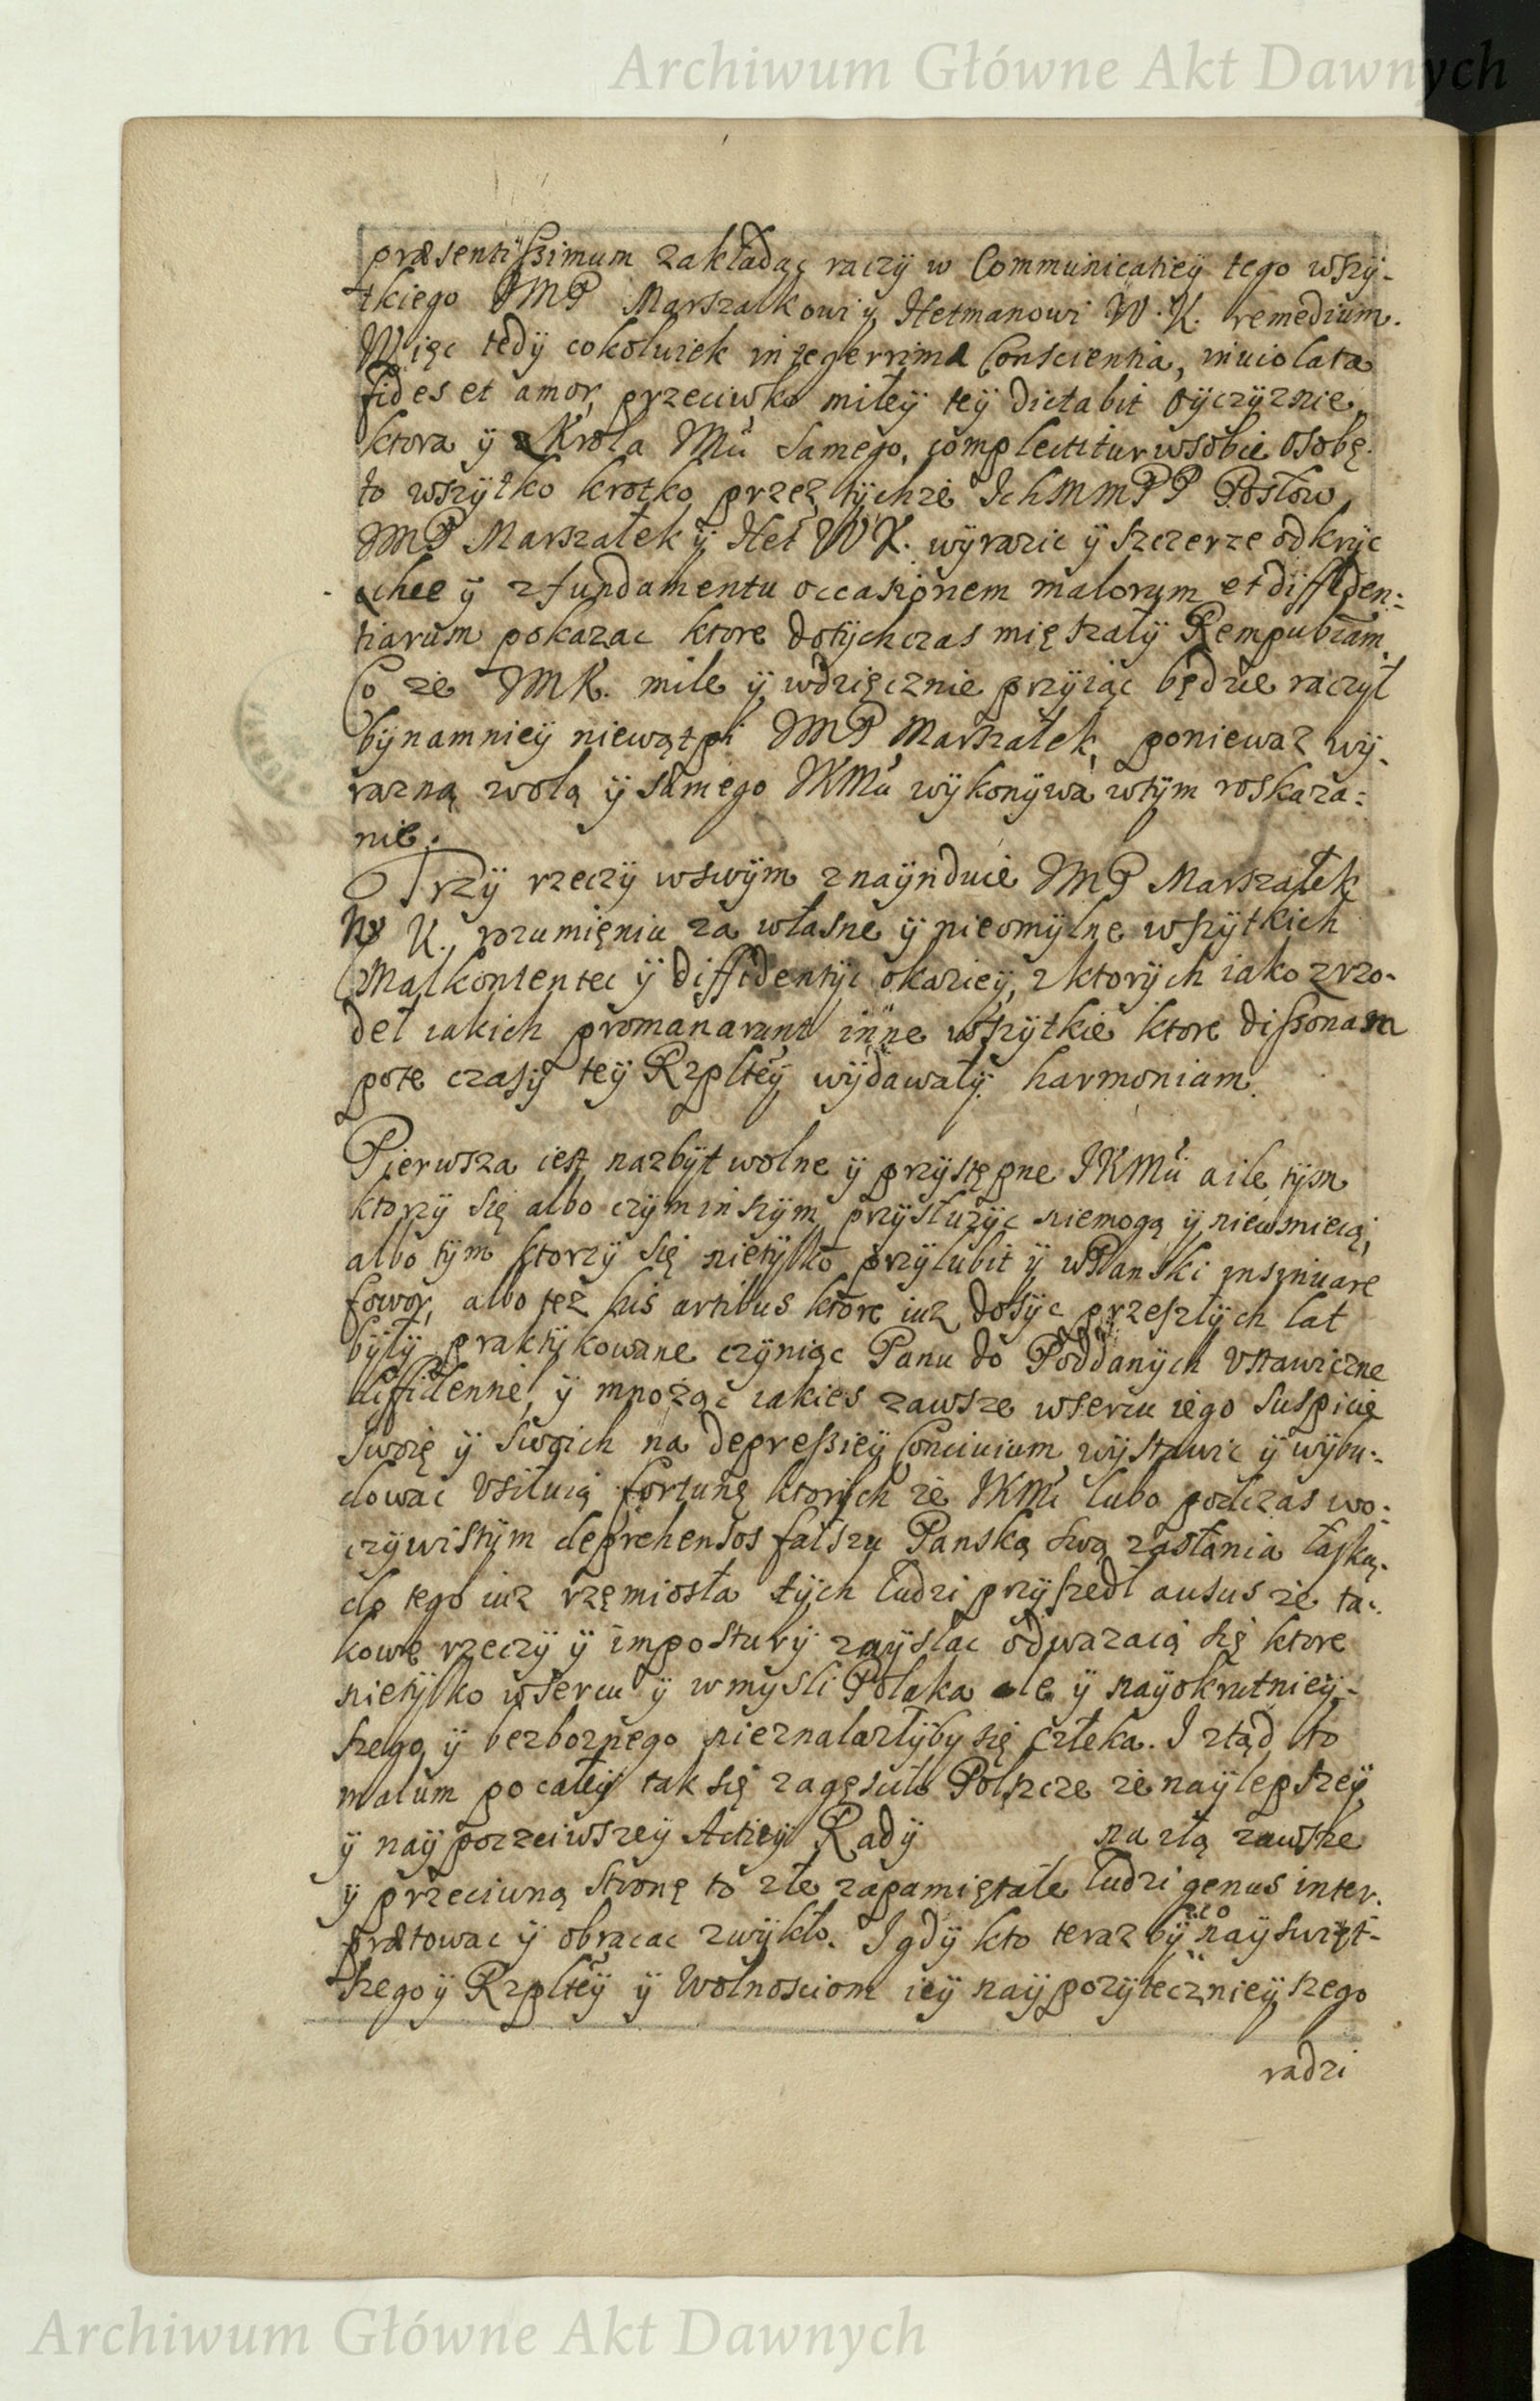 Archiwum Główne Akt Dawnych
præsentißimum zakładac raczÿ w Communicatieÿ tego wszÿ-
tkiego JMP Marszałkowi ÿ Hetmanowi W. K. remedium.
Więc tedÿ cokolwiek integerrima Conscientia, inuiolata
fides et amor, przeciwko miłeÿ teÿ dictabit oÿczÿznie,
ktora ÿ z Krola Mči samego, complectitur wsobie osobę.
to wszÿtko krotko przez tÿchze IchMMPP Posłow
JMP Marszałek ÿ Het WK. wÿrazic ÿ szczerze odkrÿc
chce ÿ z fundamentu occasionem malorum et diffiden:
tiarum pokazac ktore dotÿchczas mięszałÿ Rempublam.
Co ze JMK. mile ÿ wdzięcznie przÿiąc będzie raczÿł
bÿnamnieÿ niewątpi JMP Marszałek, poniewaz wÿ-
razną wolą ÿ samego JKMči wÿkonÿwa wtÿm roskaza:
nie.
Trzÿ rzeczÿ wswÿm znaÿnduie JMP Marszałek
W K. rozumięniu za własne ÿ nieomÿlne wszÿtkich
Malkontentec ÿ diffidentÿc okazieÿ, z ktorÿch iako zrzo-
deł iakich promanarunt inne wszÿtkie ktore dißonam
pote czasÿ teÿ Rzplteÿ wÿdawałÿ harmoniam.
Pierwsza iest nazbÿt wolne ÿ przÿstępne JKMči aile tÿm
ktorzÿ się albo czÿm inszÿm przÿsłuzÿc niemogą ÿ nieumieią,
albo tÿm ktorzÿ się nietÿlko przÿlubit ÿ wPanski insinuare
fowor, albo tez his artibus ktore iuz dosÿc przeszłÿch lat
bÿłÿ praktÿkowane czÿniąc Panu do Poddanÿch Vstawiczne
diffidennie, ÿ mnoząc iakies zawsze wsercu iego suspicie
swoię ÿ swoich na depreßieÿ Conciuium wÿstawic ÿ wÿbu:
dowac Vsiłuią fortunę ktorÿch ze JKMč lubo podczas wo:
czÿwistÿm deprehensos fałszu Panską swą zasłania łaską.
do tego iuz rzęmiosła tÿch ludzi przÿszedł ausus ze ta:
kowe rzeczÿ ÿ imposturÿ zmÿslac odwazaią się ktore
nietÿlko wsercu ÿ wmysli Polaka ale ÿ naÿokrutnieÿ-
szego ÿ bezboznego nieznalazłÿby się człeka. I ztąd to
malum po całeÿ tak się zagęsciło Polszcze ze naÿlepszeÿ
ÿ naÿpoczciwszeÿ Actieÿ Radÿ na złą zawsze
ÿ przeciwną stronę to złe zapamiętałe ludzi genus inter-
prætowac ÿ obracac zwÿkło. I gdÿ kto teraz bÿ co naÿswięt-
szego ÿ Rzplteÿ ÿ Wolnosciom ieÿ naÿpozÿtecznieÿszego
radzi
Archiwum Główne Akt Dawnych